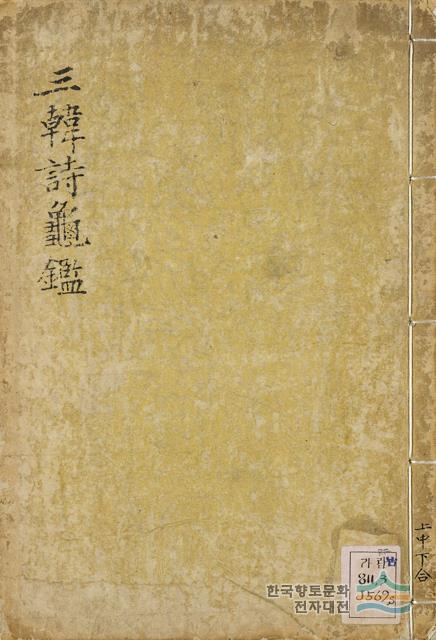 三韓詩龜鑑
上中下合
811.3
J569s
한국향토문화
전자대전